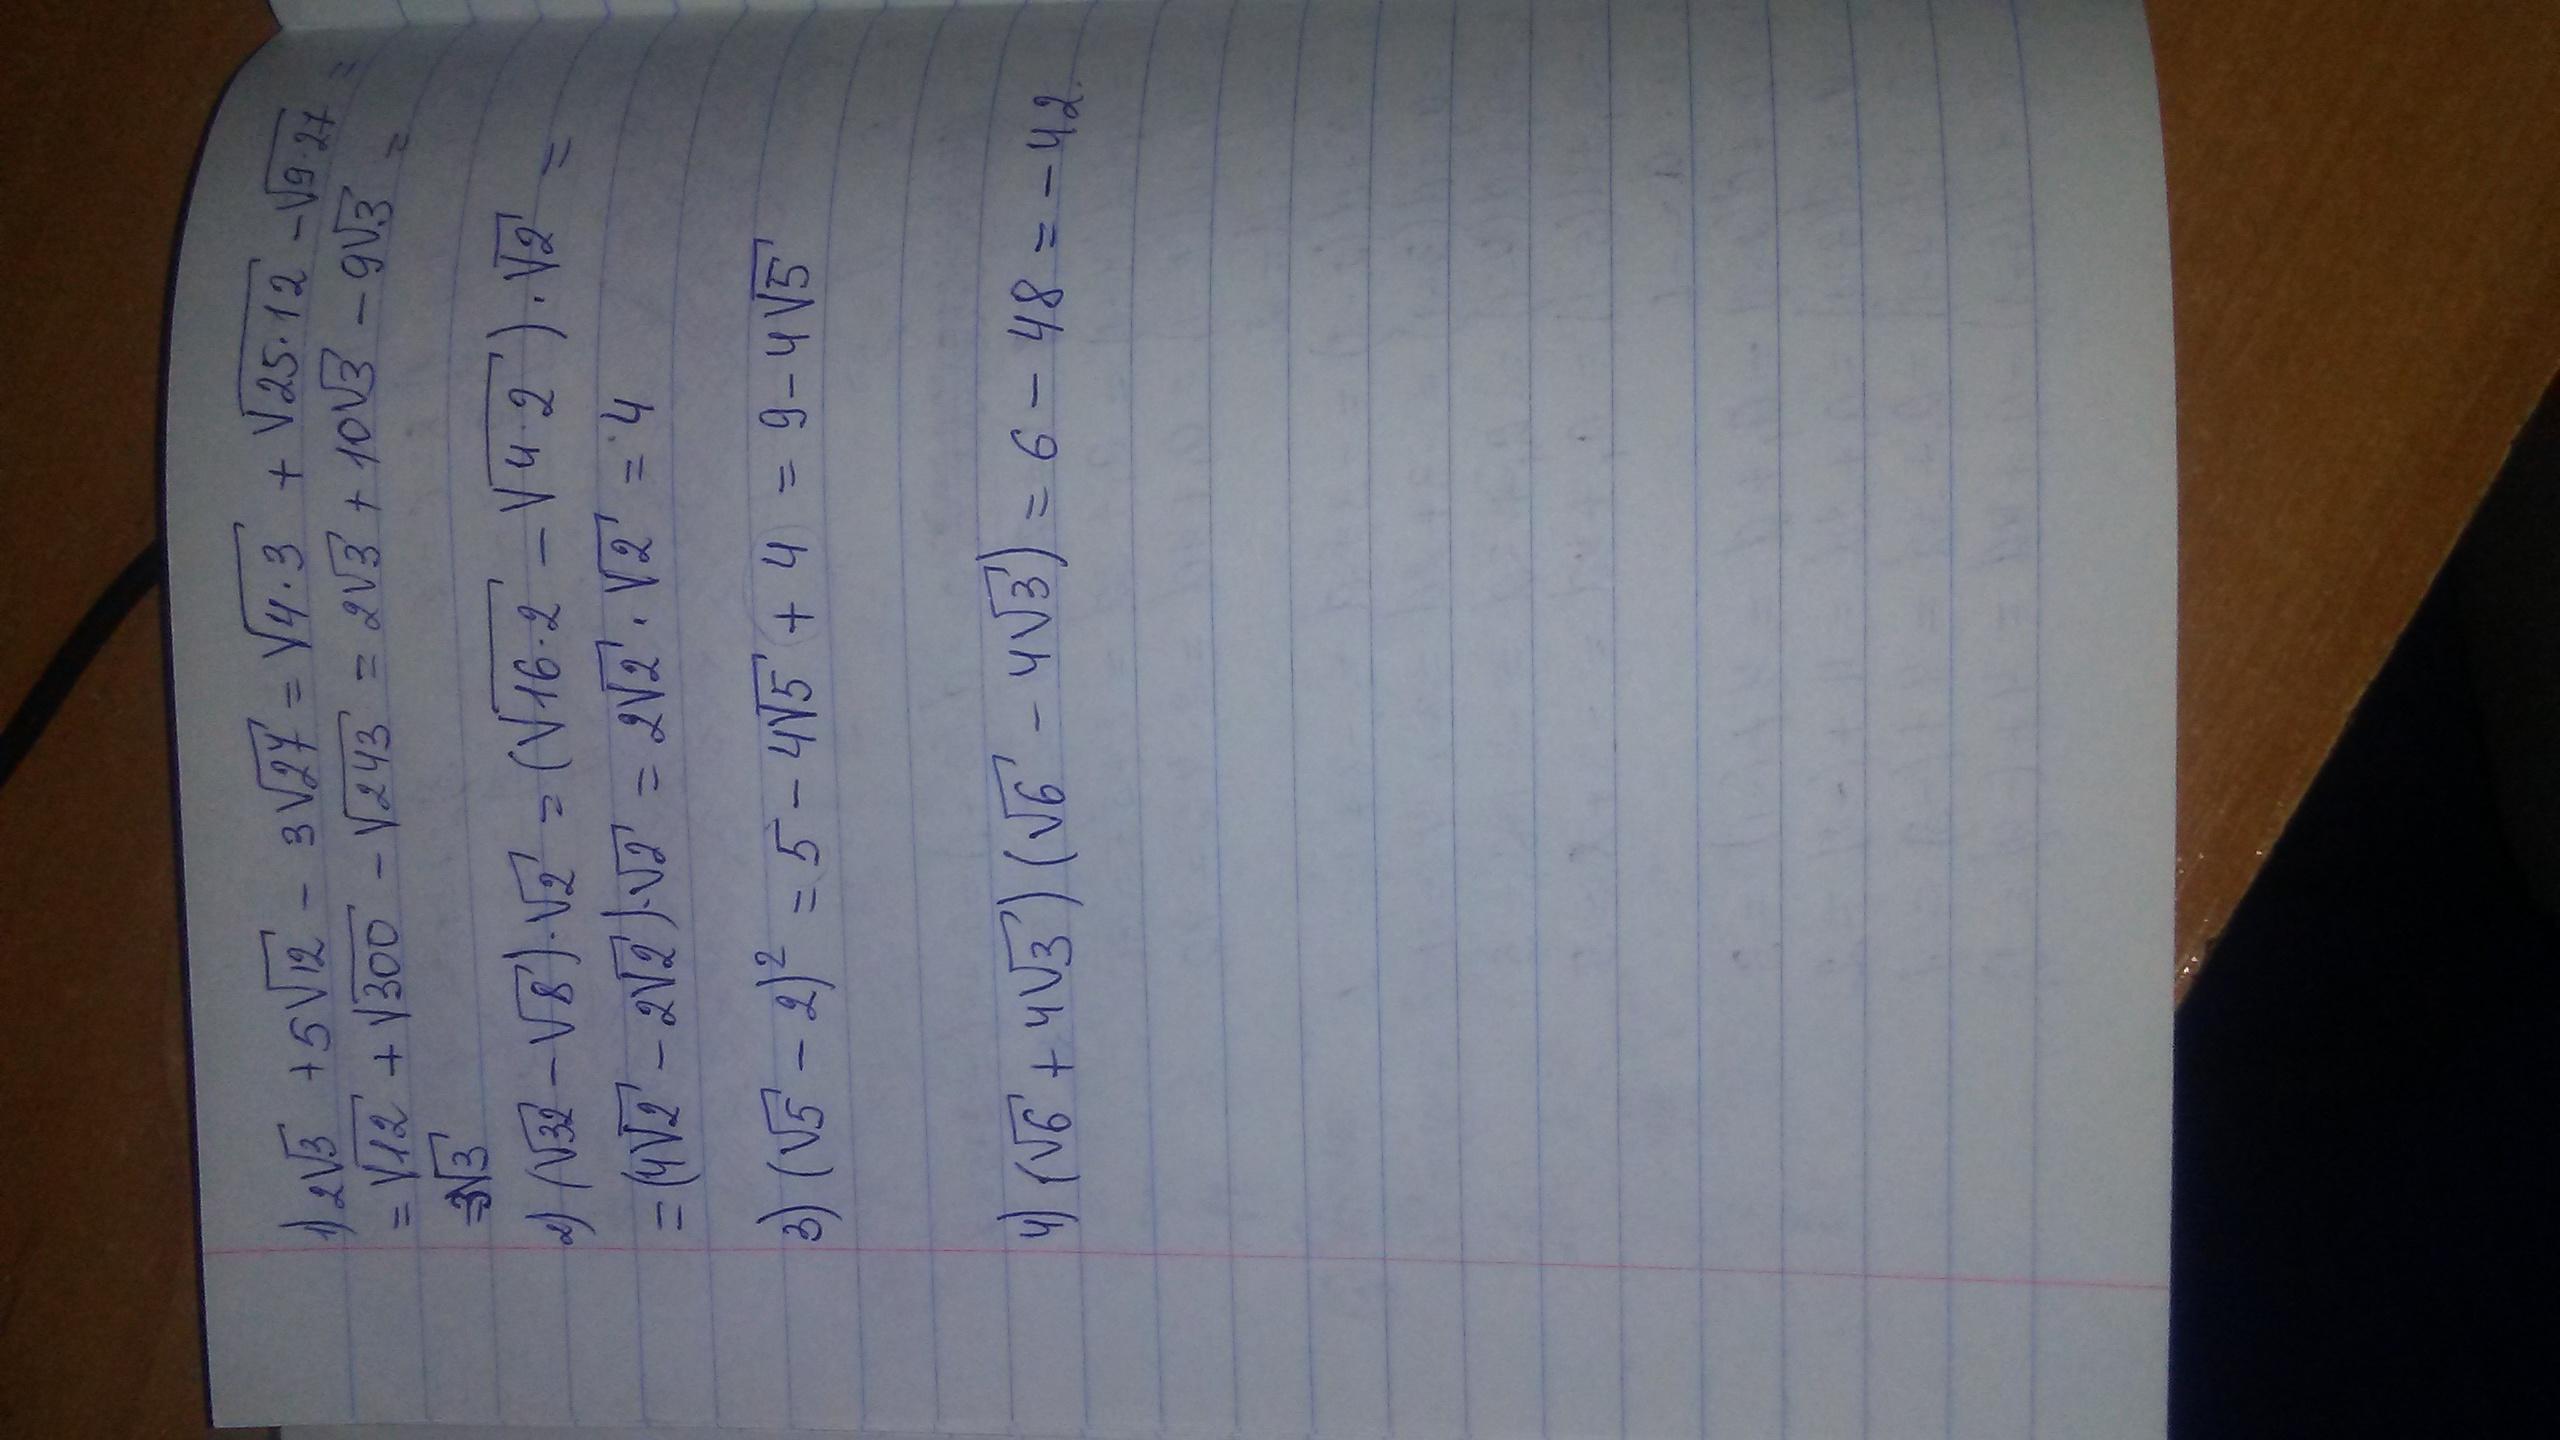 1) 2√3 + 5√12 - 3√27 = √4·3 + √25·12 - √9·27 =
= √12 + √300 - √243 = 2√3 + 10√3 - 9√3 =
= 3√3
2) (√32 - √8)·√2 = (√16·2 - √4·2)·√2 =
= (4√2 - 2√2)·√2 = 2√2·√2 = 4
3) (√5 - 2)² = 5 - 4√5 + 4 = 9 - 4√5
4) (√6 + 4√3)(√6 - 4√3) = 6 - 48 = -42.